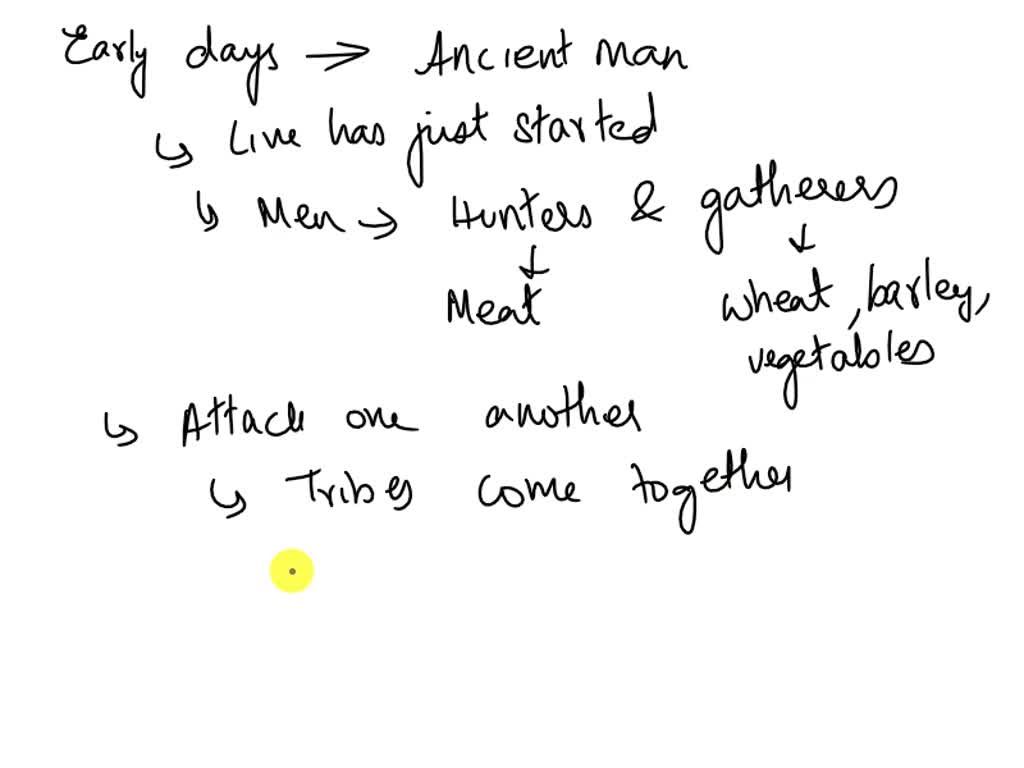 Early days → Ancient man
↳ Live has just started
↳ Men → Hunters & gatherers
↓ ↓
Meat wheat, barley,
vegetables
↳ Attack one another
↳ Tribes come together